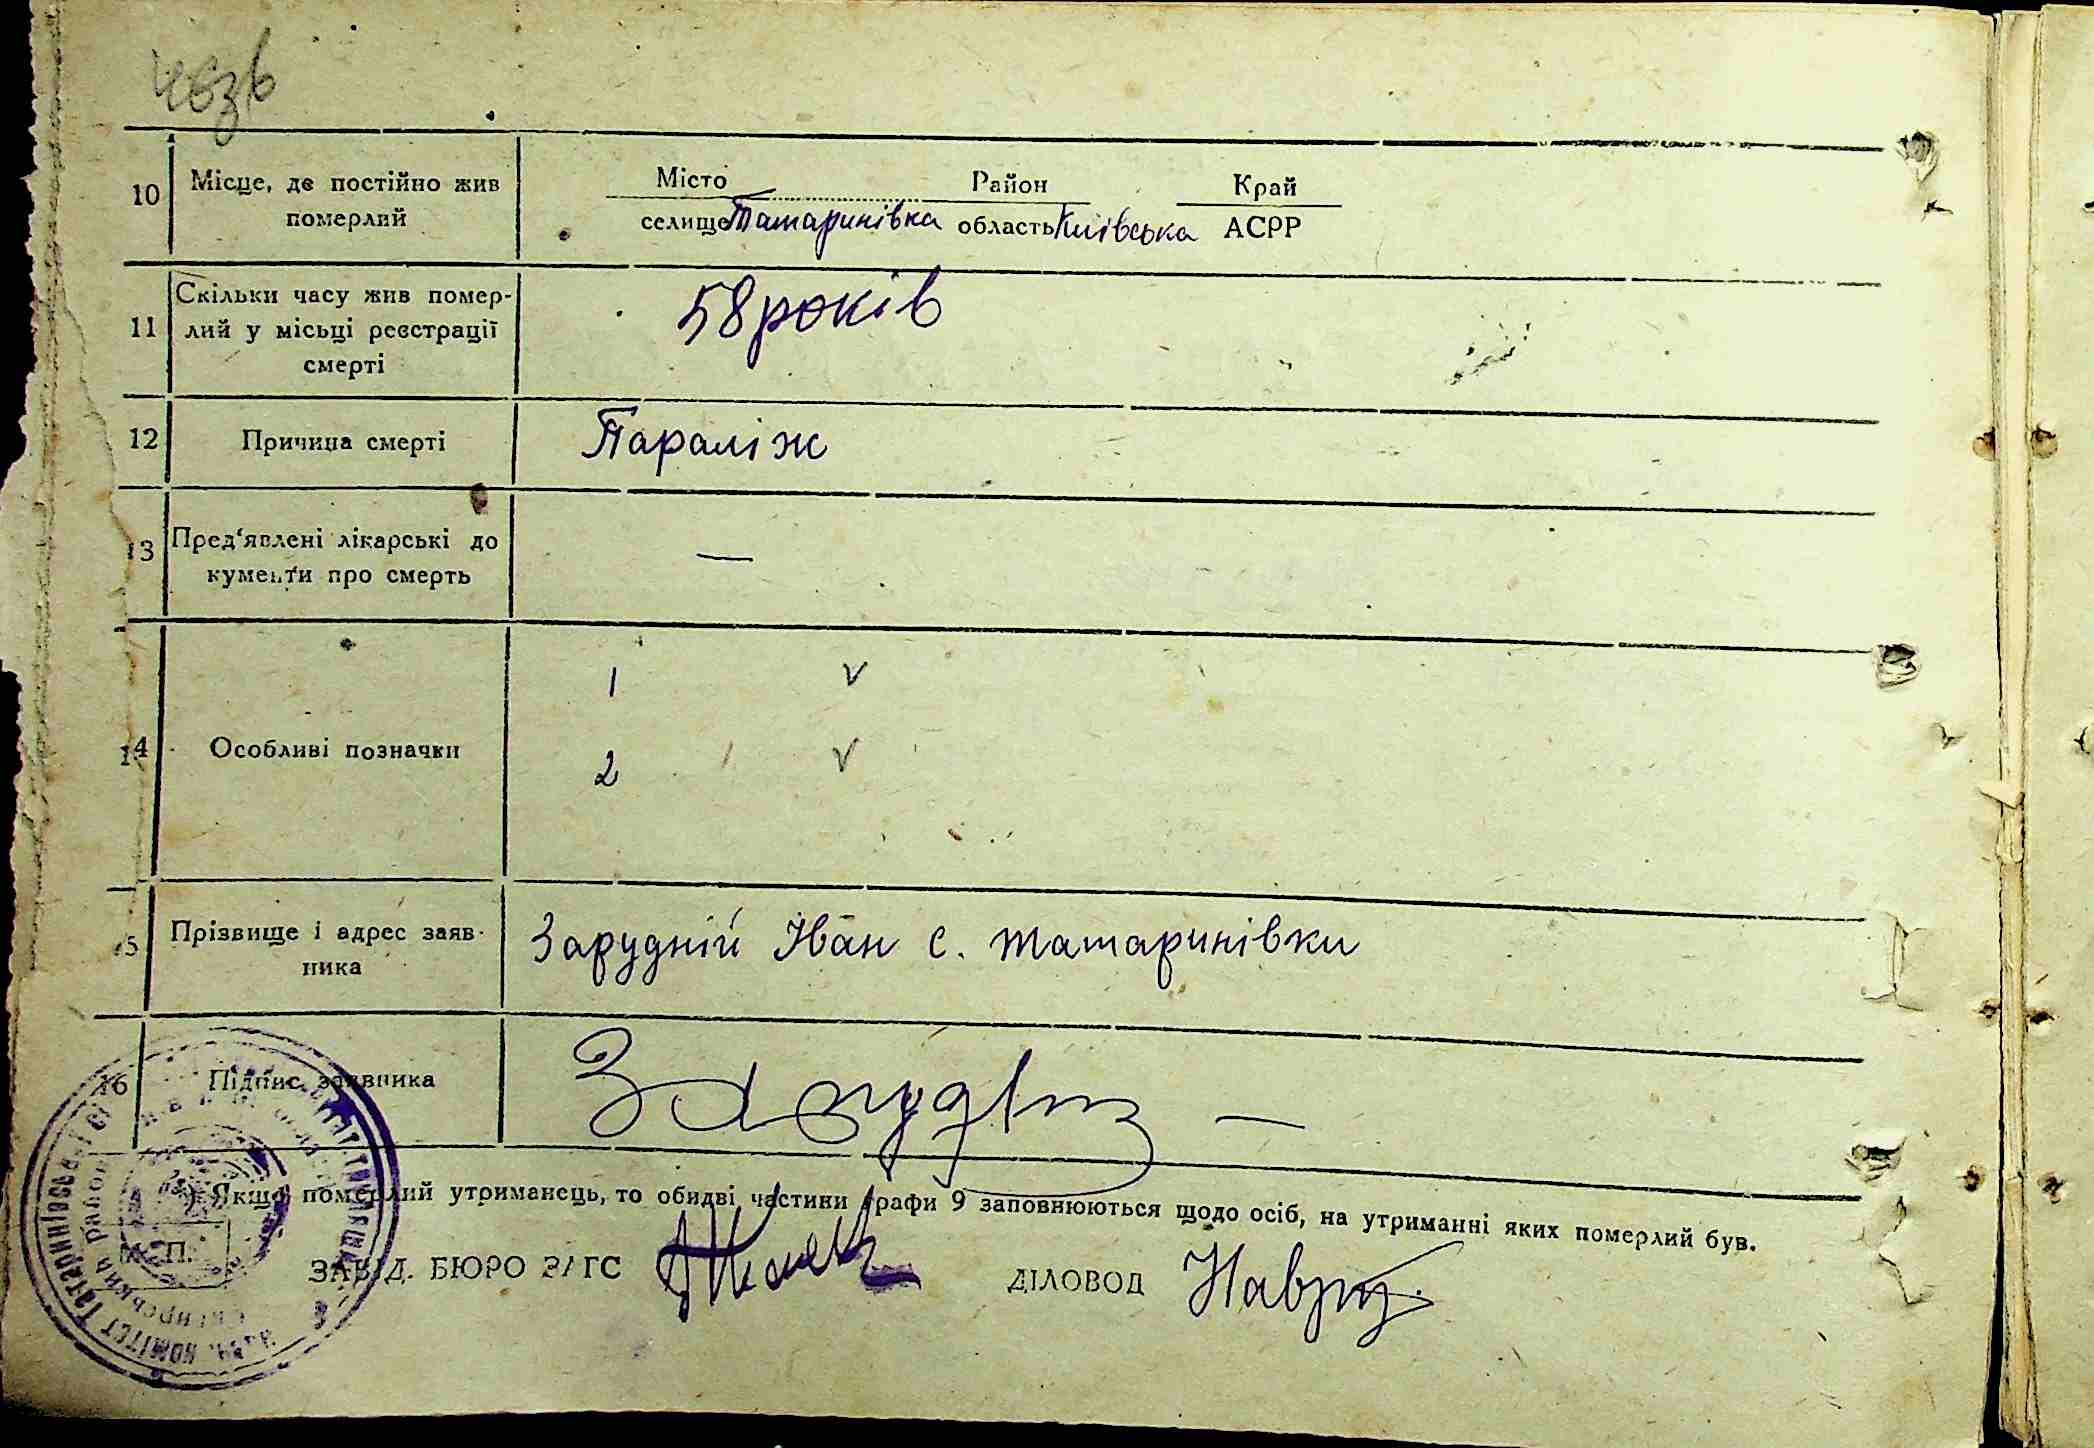 10 Місце, де постійно жив
померлий
Місто Район Край
селище Татаринівка область Київська АСРР
11 Скільки часу жив помер-
лий у місьці реєстрації
смерті
58 років
12 Причина смерті Параліж
13 Пред'явлені лікарські до
кументи про смерть
—
14 Особливі позначки
1 v
2 v
15 Прізвище і адрес заяв-
ника
Зарудній Іван с. Татаринівки
16 Підпис заявника
Якщо померлий утриманець, то обидві частини графи 9 заповнюються щодо осіб, на утриманні яких померлий був.
М. П.
ЗАВІД. БЮРО ЗАГС ДІЛОВОД